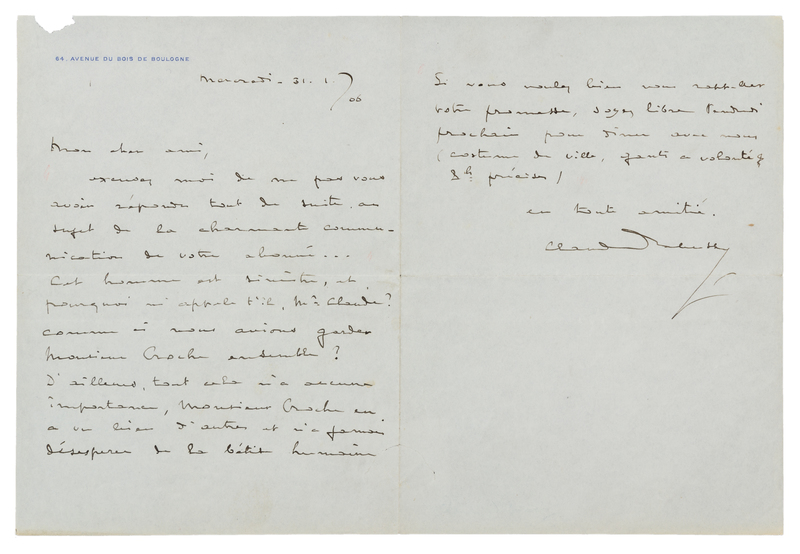 64. AVENUE DU BOIS DE BOULOGNE
Mercredi - 31. 1. 06
Mon cher ami,
excusez moi de ne pas vous
avoir répondu tout de suite au
sujet de la charmant commu-
nication de votre abonné...
Cet homme est sinistre, et
pourquoi m'appele t'il, Mr Claude?
comme si nous avions gardé
Monsieur Croche ensemble?
D'ailleurs, tout cela n'a aucune
importance, Monsieur Croche en
a vu bien d'autres et n'a jamais
désesperer de la bétise humaine
Si vous voulez bien vous rappeler
votre promesse, soyez libre Vendredi
prochain pour diner avec nous
(costume de ville, gants a volonté
8h précises)
en tout amitié.
Claude Debussy